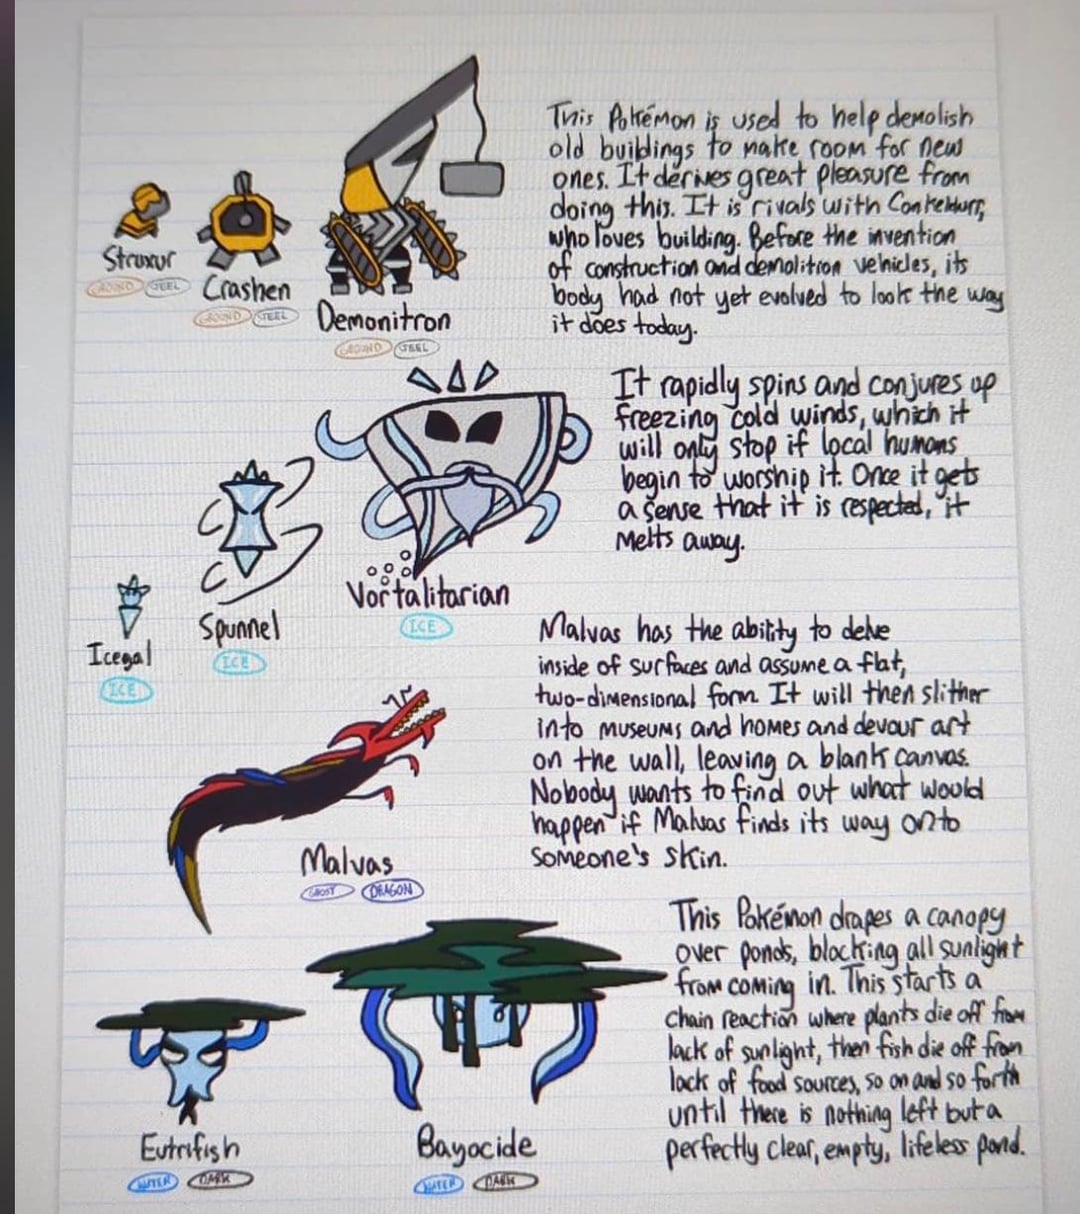 This Pokémon is used to help demolish
old buildings to make room for new
ones. It derives great pleasure from
doing this. It is rivals with Conkeldurr,
who loves building. Before the invention
of construction and demolition vehicles, its
body had not yet evolved to look the way
it does today.
Struxur
GROUND STEEL
Crashen
GROUND STEEL
Demonitron
GROUND STEEL
It rapidly spins and conjures up
freezing cold winds, which it
will only stop if local humans
begin to worship it. Once it gets
a sense that it is respected, it
melts away.
Icegal
ICE
Spunnel
ICE
Vortalitarian
ICE
Malvas has the ability to delve
inside of surfaces and assume a flat,
two-dimensional form. It will then slither
into museums and homes and devour art
on the wall, leaving a blank canvas.
Nobody wants to find out what would
happen if Malvas finds its way onto
someone's skin.
Malvas
GHOST DRAGON
This Pokémon drapes a canopy
over ponds, blocking all sunlight
from coming in. This starts a
chain reaction where plants die off from
lack of sunlight, then fish die off from
lack of food sources, so on and so forth
until there is nothing left but a
perfectly clear, empty, lifeless pond.
Eutrifish
WATER DARK
Bayocide
WATER DARK